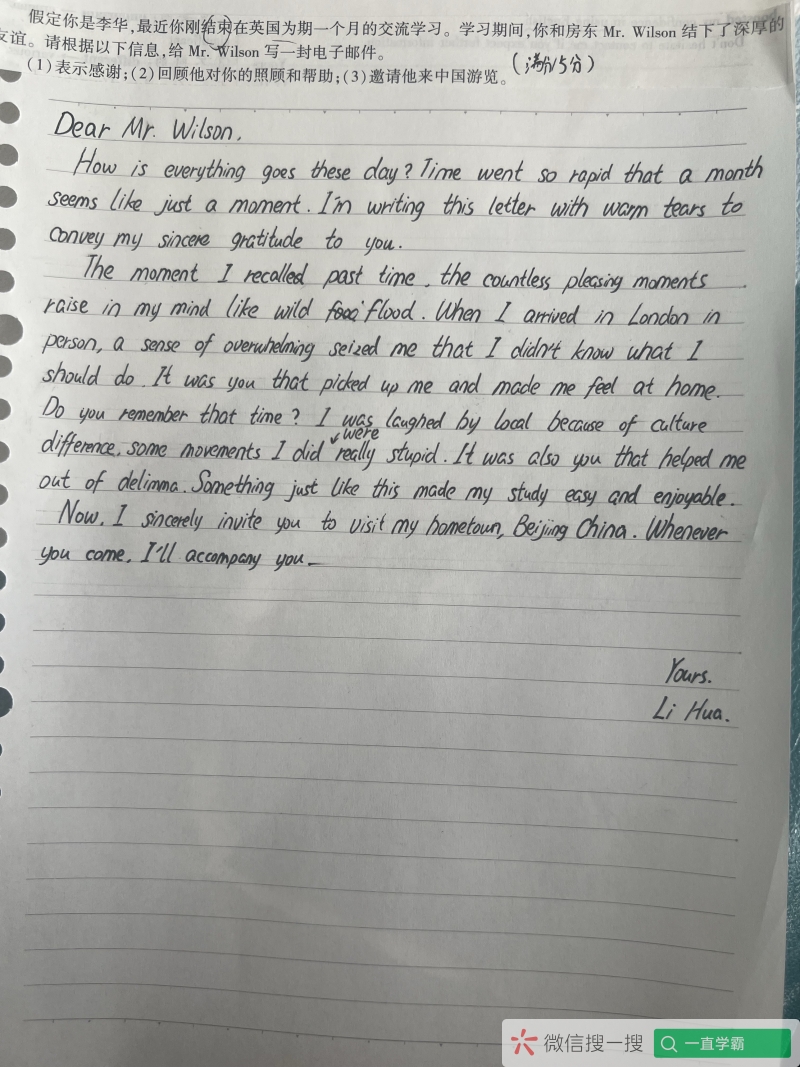 假定你是李华,最近你刚结束在英国为期一个月的交流学习。学习期间,你和房东 Mr. Wilson 结下了深厚的
友谊。请根据以下信息,给 Mr. Wilson 写一封电子邮件。
(1)表示感谢;(2)回顾他对你的照顾和帮助;(3)邀请他来中国游览。
(满分15分)
Dear Mr. Wilson,
How is everything goes these day? Time went so rapid that a month
seems like just a moment. I'm writing this letter with warm tears to
convey my sincere gratitude to you.
The moment I recalled past time, the countless pleasing moments
raise in my mind like wild flood. When I arrived in London in
person, a sense of overwhelming seized me that I didn't know what I
should do. It was you that picked up me and made me feel at home.
Do you remember that time? I was laughed by local because of culture
difference, some movements I did were really stupid. It was also you that helped me
out of delimma. Something just like this made my study easy and enjoyable.
Now, I sincerely invite you to visit my hometown, Beijing China. Whenever
you come, I'll accompany you.
Yours.
Li Hua.
微信搜一搜
一直学霸